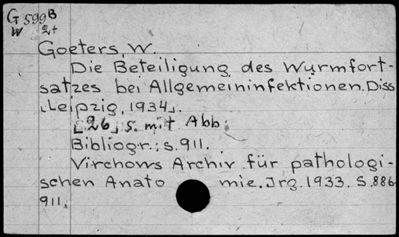 G 599 B
W 2,+
Goeters, W.
Die Beteiligung des Wurmfort-
satzes bei Allgemeininfektionen. Diss
Leipzig, 1934.
[26] s. mit Abb.
Bibliogr.: s. 911.
Virchows Archiv für pathologi-
schen Anato mie. Jrg. 1933. S. 886-
911.